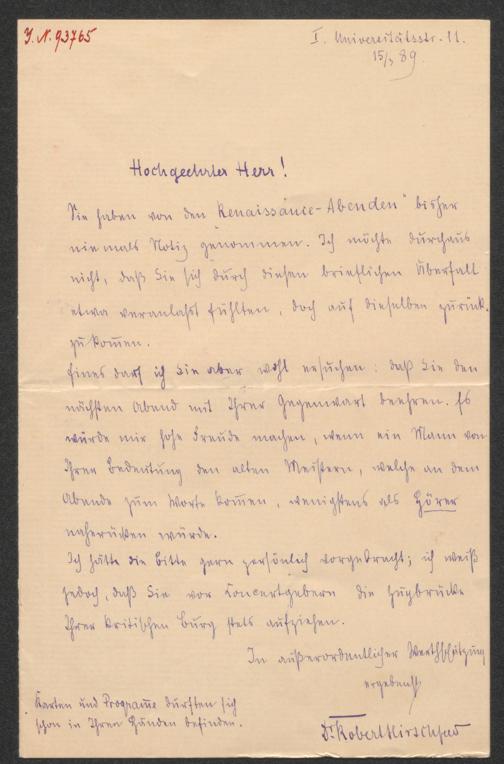 I. N. 93765
I. Universitätsstr. 11.
15/3 89.
Hochgeehrter Herr!
Sie haben von den „Renaissance-Abenden“ bisher
niemals Notiz genommen. Ich möchte durchaus
nicht, daß Sie sich durch diesen brieflichen Überfall
etwa veranlasst fühlten, doch auf dieselben zurück-
zukom̅en.
Eines darf ich Sie aber wohl ersuchen: daß Sie den
nächsten Abend mit Ihrer Gegenwart beehren. Es
würde mir hohe Freude machen, wenn ein Mann von
Ihrer Bedeutung den alten Meistern, welche an dem
Abende zum Worte kom̅en, wenigstens als Hörer
naherücken würde.
Ich hätte die Bitte gern persönlich vorgebracht; ich weiß
jedoch, daß Sie vor Concertgebern die Zugbrücke
Ihrer kritischen Burg stets aufziehen.
In außerordentlicher Werthschätzung
ergebenst
Dr Robert Hirschfeld
Karten und Program̅e dürften sich
schon in Ihren Händen befinden.